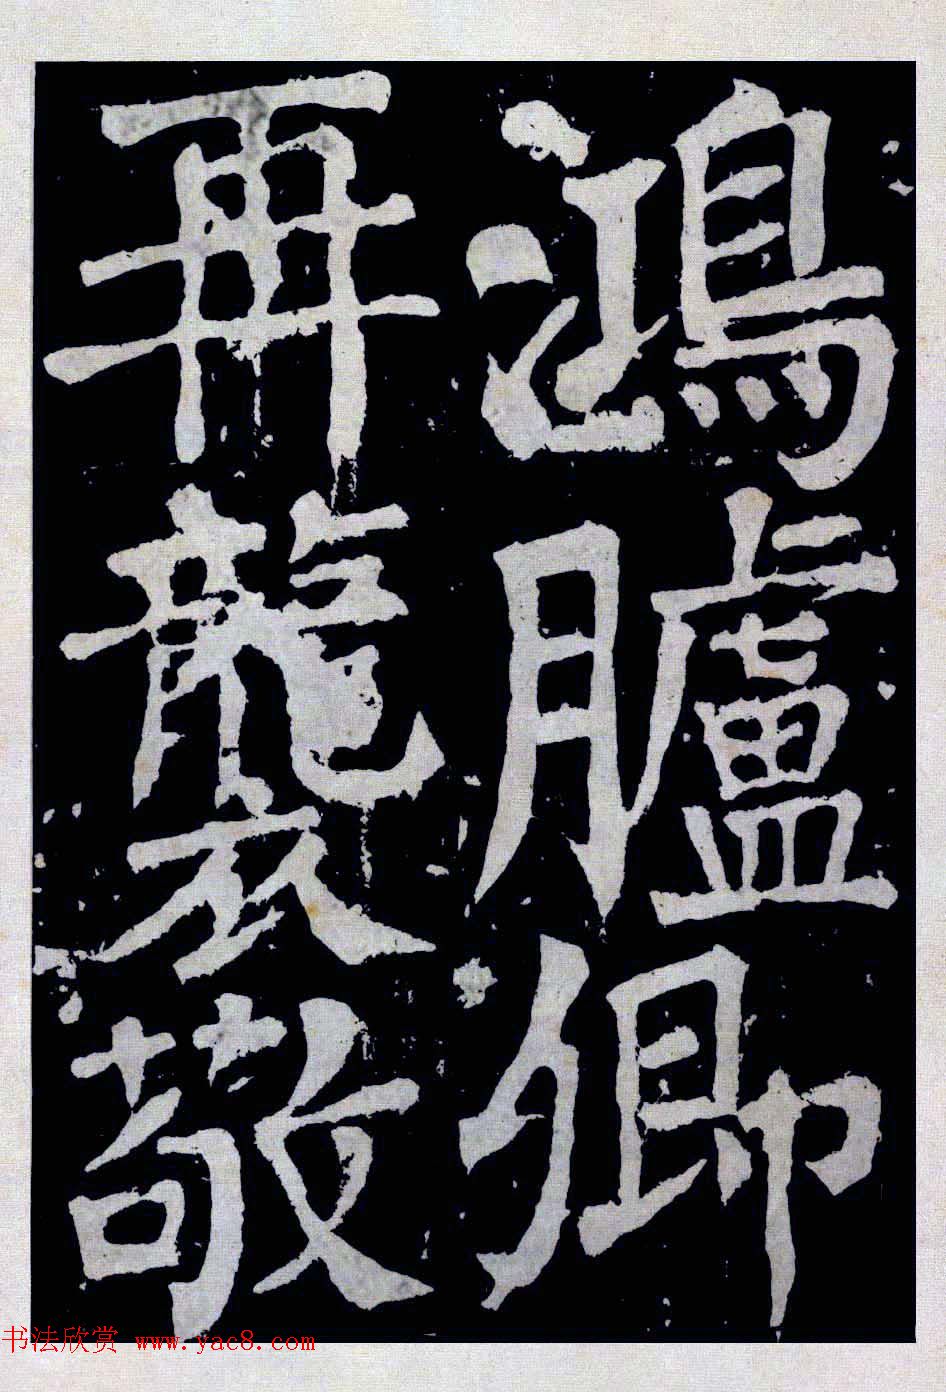 鴻臚卿
再襲敬
书法欣赏 www.yac8.com